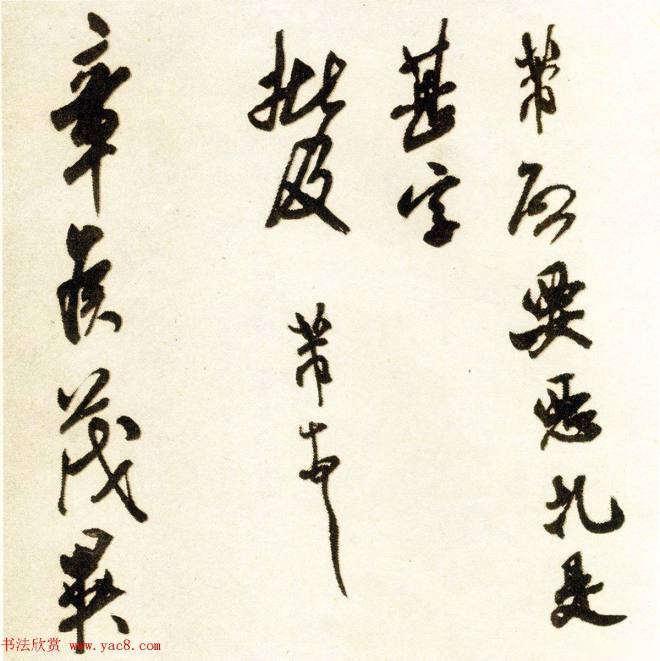 芾啓要惡札是
甚字
批及 芾
章侯茂異
书法欣赏 www.yac8.com